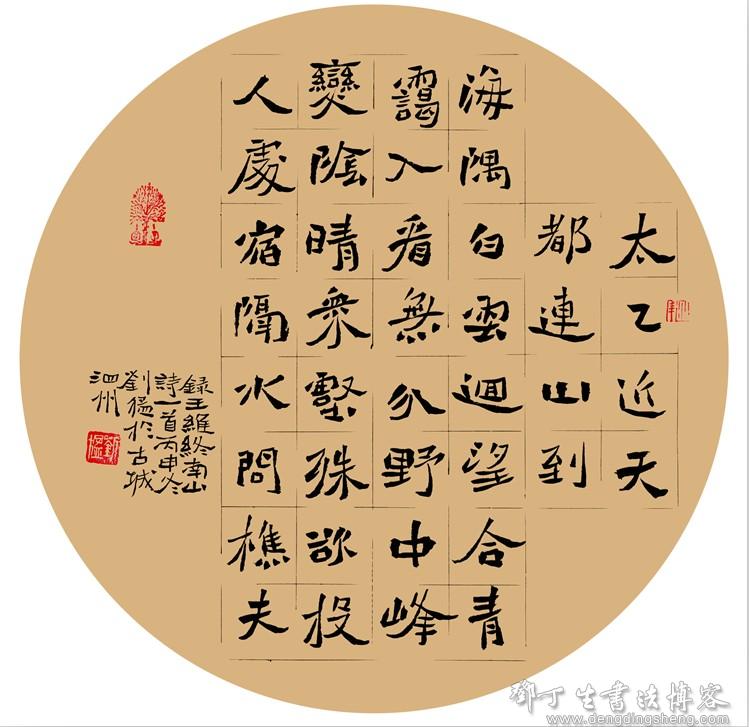 太乙近天
都連山到
海隅白雲迴望合青
靄入看無分野中峰
變陰晴衆壑殊欲投
人處宿隔水問樵夫
錄王維終南山
詩一首丙申冬
劉猛於古城
泗州
鄧丁生書法博客
www.dengdingsheng.com